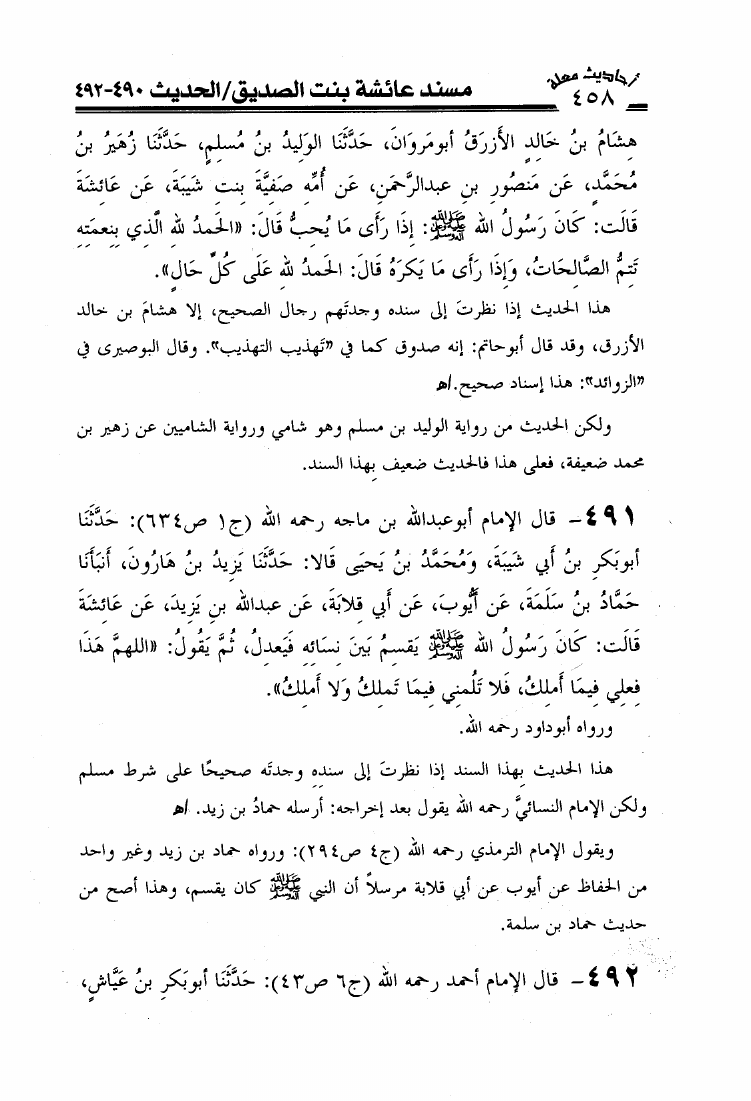 أحاديث معلة
٤٥٨
مسند عائشة بنت الصديق/الحديث ٤٩٠-٤٩٢
هِشَامُ بنُ خَالِدٍ الأَزرَقُ أبومَروَانَ، حَدَّثَنَا الوَلِيدُ بنُ مُسلِمٍ، حَدَّثَنَا زُهَيرُ بنُ
مُحَمَّدٍ، عَن مَنصُورِ بنِ عبدالرَّحمَنِ، عَن أُمِّه صَفِيَّةَ بِنتِ شَيبَةَ، عَن عَائِشَةَ
قَالَت: كَانَ رَسُولُ الله ﷺ: إِذَا رَأَى مَا يُحِبُّ قَالَ: «الحَمدُ للهِ الَّذي بِنعمَتِه
تَتِمُّ الصَّالِحَاتُ، وَإِذَا رَأَى مَا يَكرَهُ قَالَ: الحَمدُ للهِ عَلَى كُلِّ حَالٍ».
هذا الحديث إذا نظرتَ إلى سنده وجدتَهم رجال الصحيح، إلا هشامَ بن خالد
الأزرق، وقد قال أبوحاتم: إنه صدوق كما في «تَهذيب التهذيب». وقال البوصيرى في
«الزوائد»: هذا إسناد صحيح.اﻫ
ولكن الحديث من رواية الوليد بن مسلم وهو شامي ورواية الشاميين عن زهير بن
محمد ضعيفة، فعلى هذا فالحديث ضعيف بِهذا السند.
٤٩١- قال الإمام أبوعبدالله بن ماجه رحمه الله (ج١ ص٦٣٤): حَدَّثَنَا
أبوبَكرِ بنُ أَبي شَيبَةَ، وَمُحَمَّدُ بنُ يَحيَى قَالا: حَدَّثَنَا يَزِيدُ بنُ هَارُونَ، أَنبَأَنَا
حَمَّادُ بنُ سَلَمَةَ، عَن أَيُّوبَ، عَن أَبي قِلابَةَ، عَن عبدالله بنِ يَزِيدَ، عَن عَائِشَةَ
قَالَت: كَانَ رَسُولُ الله ﷺ يَقسِمُ بَينَ نِسَائِه فَيَعدِلُ، ثُمَّ يَقُولُ: «اللهمَّ هَذَا
فِعلِي فِيمَا أَملِكُ، فَلا تَلُمنِي فِيمَا تَملِكُ وَلا أَملِكُ».
ورواه أبوداود رحمه الله.
هذا الحديث بِهذا السند إذا نظرتَ إلى سندِه وجدتَه صحيحًا على شرط مسلم
ولكن الإمام النسائيَّ رحمه الله يقول بعد إخراجه: أرسله حمادُ بن زيد. اﻫ
ويقول الإمام الترمذي رحمه الله (ج٤ ص٢٩٤): ورواه حماد بن زيد وغير واحد
من الحفاظ عن أيوب عن أبي قلابة مرسلاً أن النبي ﷺ كان يقسم، وهذا أصح من
حديث حماد بن سلمة.
٤٩٢- قال الإمام أحمد رحمه الله (ج٦ ص٤٣): حَدَّثَنَا أبوبَكرِ بنُ عَيَّاشٍ،